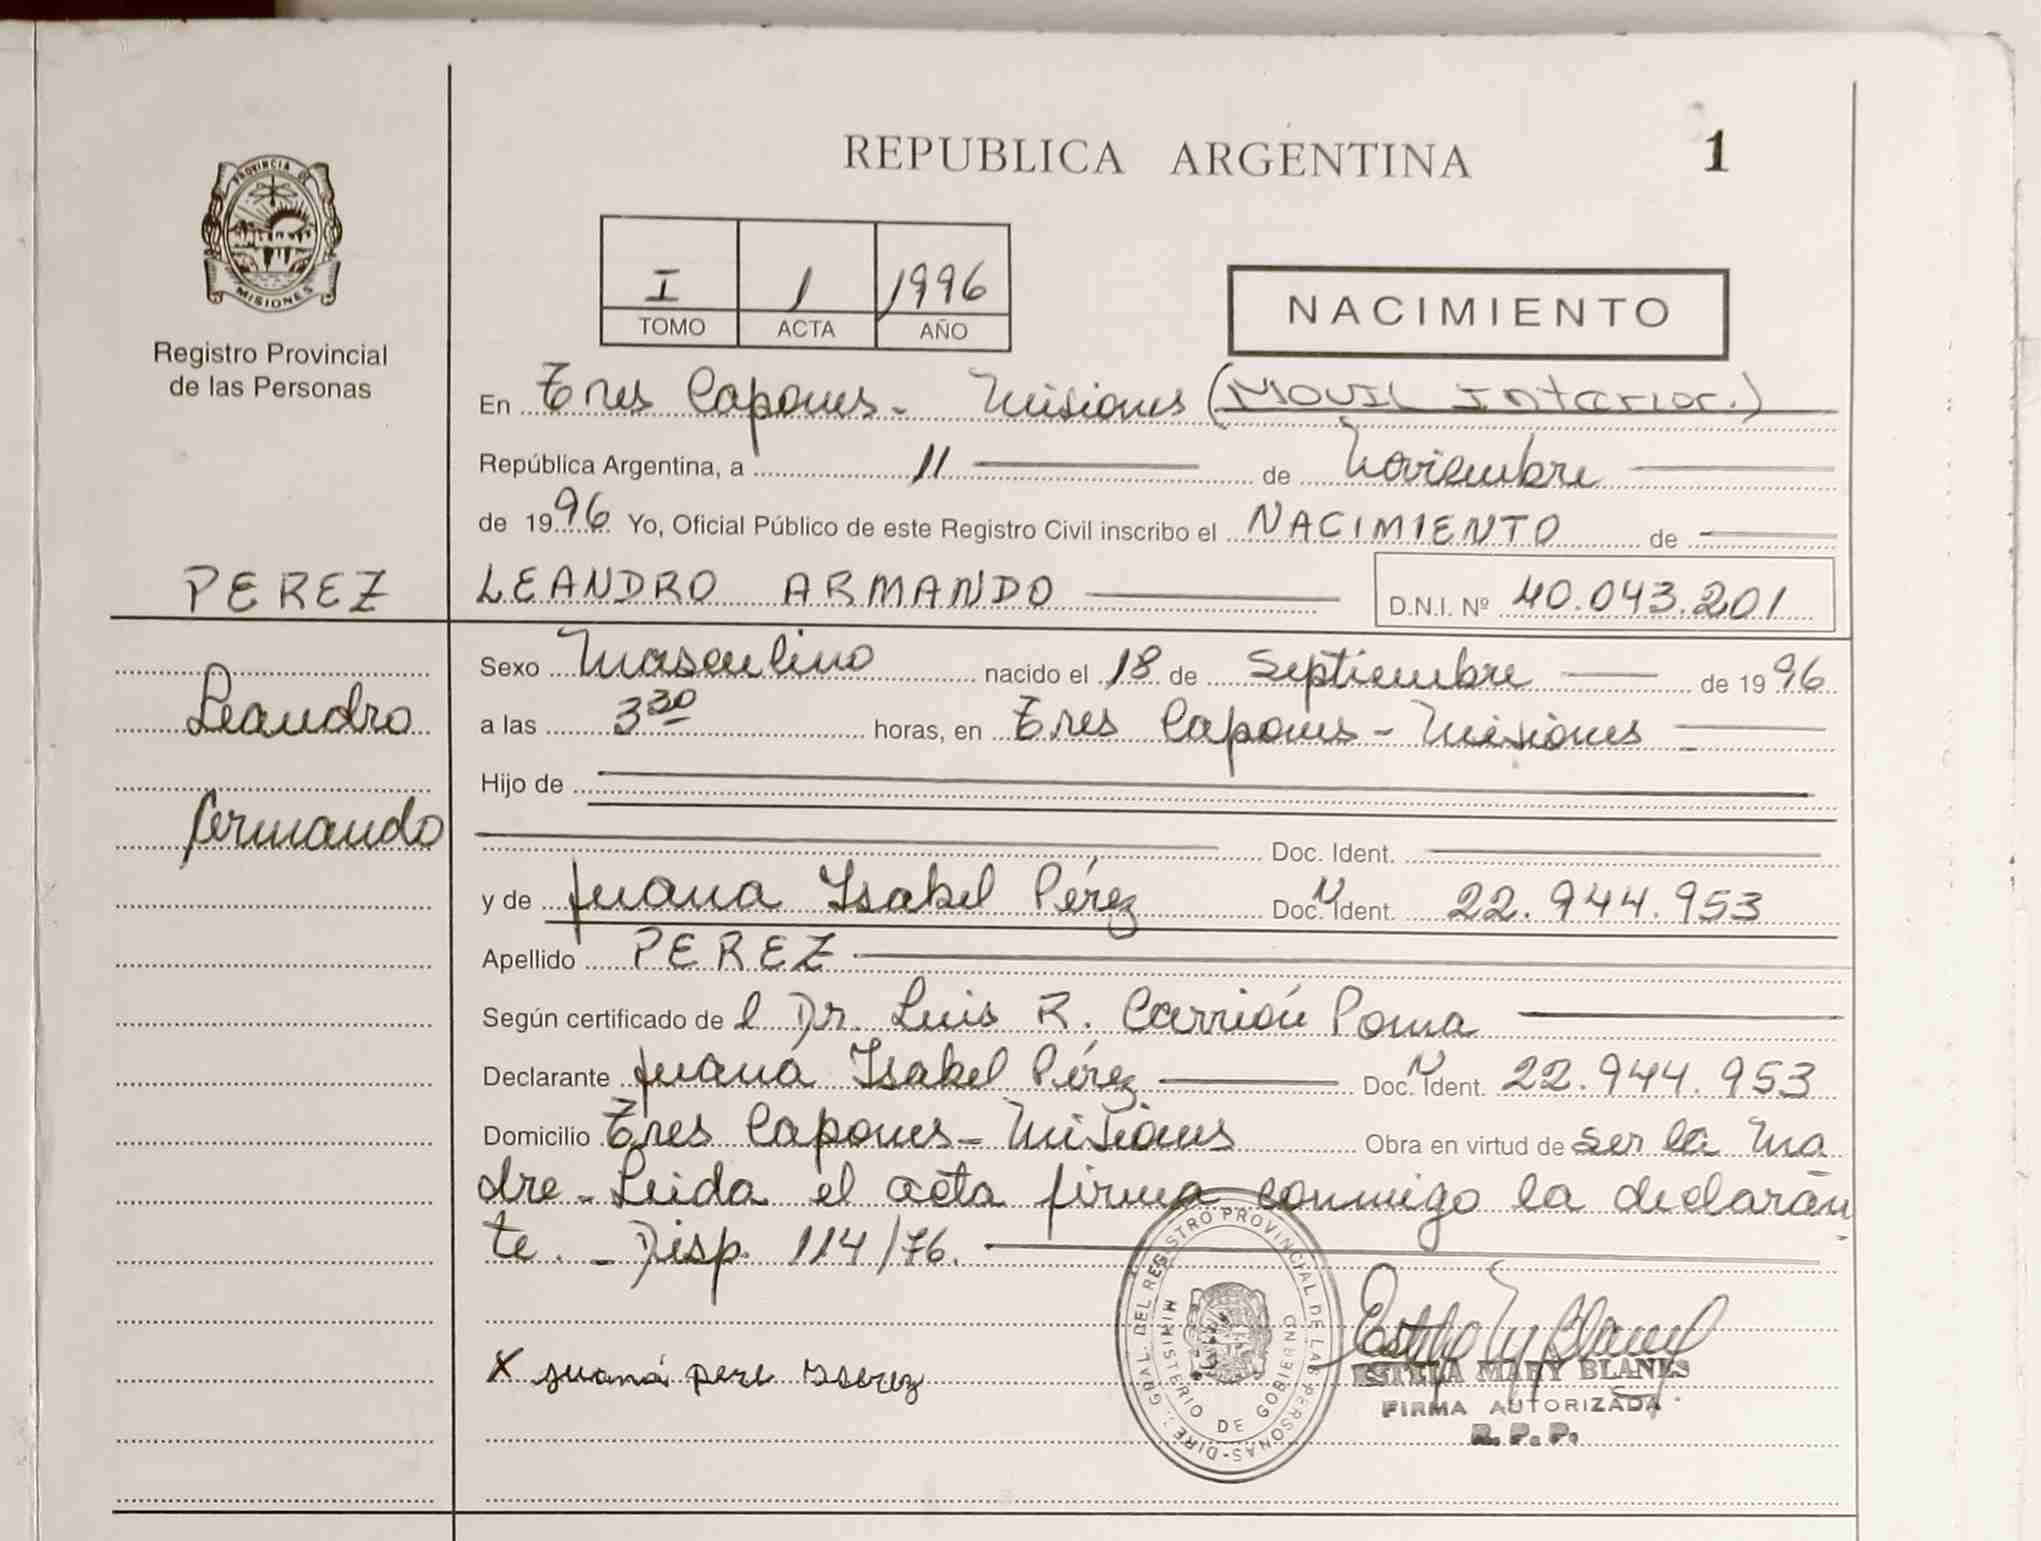 REPUBLICA ARGENTINA
1
PROVINCIA DE
MISIONES
Registro Provincial
de las Personas
I 1 1996
TOMO ACTA AÑO
NACIMIENTO
En Tres Capones - Misiones (Movil Interior.)
República Argentina, a 11 de Noviembre
de 1996 Yo, Oficial Público de este Registro Civil inscribo el NACIMIENTO de
PEREZ LEANDRO ARMANDO D.N.I. Nº 40.043.201
Sexo Masculino nacido el 18 de Septiembre de 1996
Leandro a las 3 30 horas, en Tres Capones - Misiones
Hijo de
Armando Doc. Ident.
y de Juana Isabel Pérez Doc. N Ident. 22.944.953
Apellido PEREZ
Según certificado del Dr. Luis R. Carrión Poma
Declarante Juana Isabel Pérez Doc. N Ident. 22.944.953
Domicilio Tres Capones - Misiones Obra en virtud de ser la ma
dre - Leida el acta firma conmigo la declaran
te. - Disp. 114/76.
DIRE. GRAL. DEL REGISTRO PROVINCIAL DE LAS PERSONAS
MINISTERIO DE GOBIERNO
X juana
ESTELA MARY BLANES
FIRMA AUTORIZADA
R. P. P.